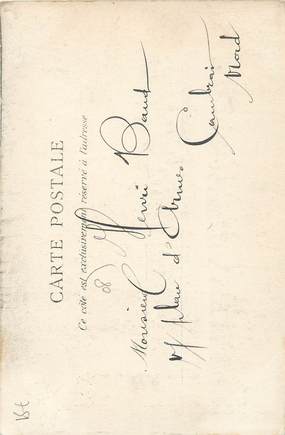 CARTE POSTALE
Ce côté est exclusivement réservé à l'adresse
Monsieur Henri Baud
Place d'Armes
Cambrai
Nord